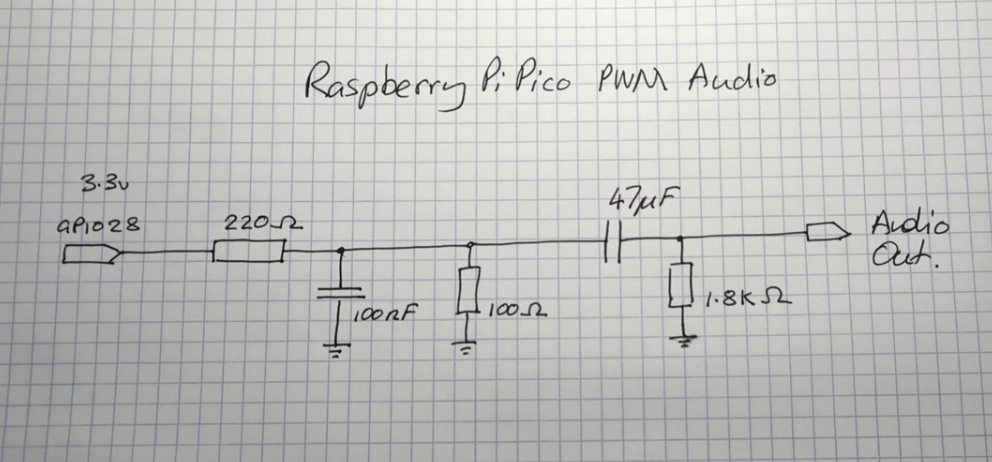 Raspberry Pi Pico PWM Audio
3.3v
GPIO28
220Ω
100nF
100Ω
47μF
1.8KΩ
Audio
Out.